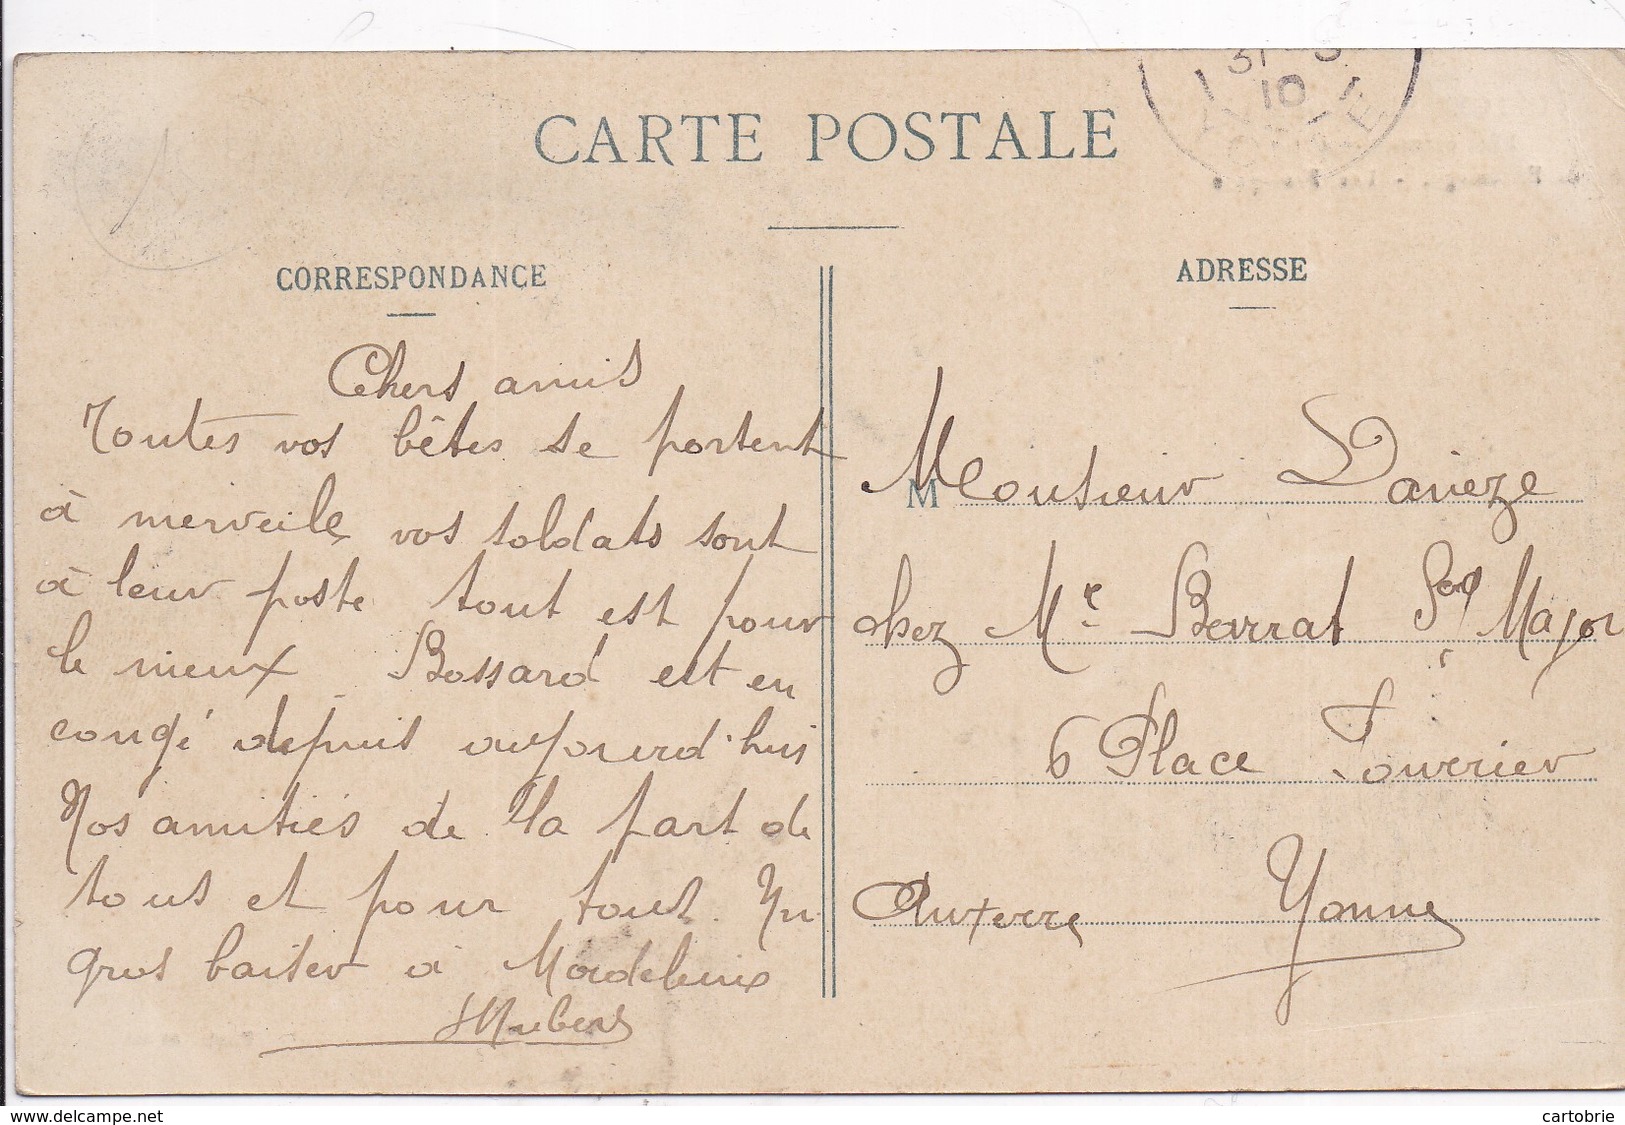 CARTE POSTALE
31
10
CORRESPONDANCE
ADRESSE
Chers amis
Toutes vos bêtes se portent
à merveile vos soldats sont
à leur poste tout est pour
le mieux Bossard est en
congé depuis aujourd'hui
Nos amitiés de la part de
tous et pour tous. Un
gros baiser à
Hubert
M Monsieur Darieze
chez Mr Barrat Major
6 Place Fourrier
Auxerre Yonne
www.delcampe.net
cartobrie